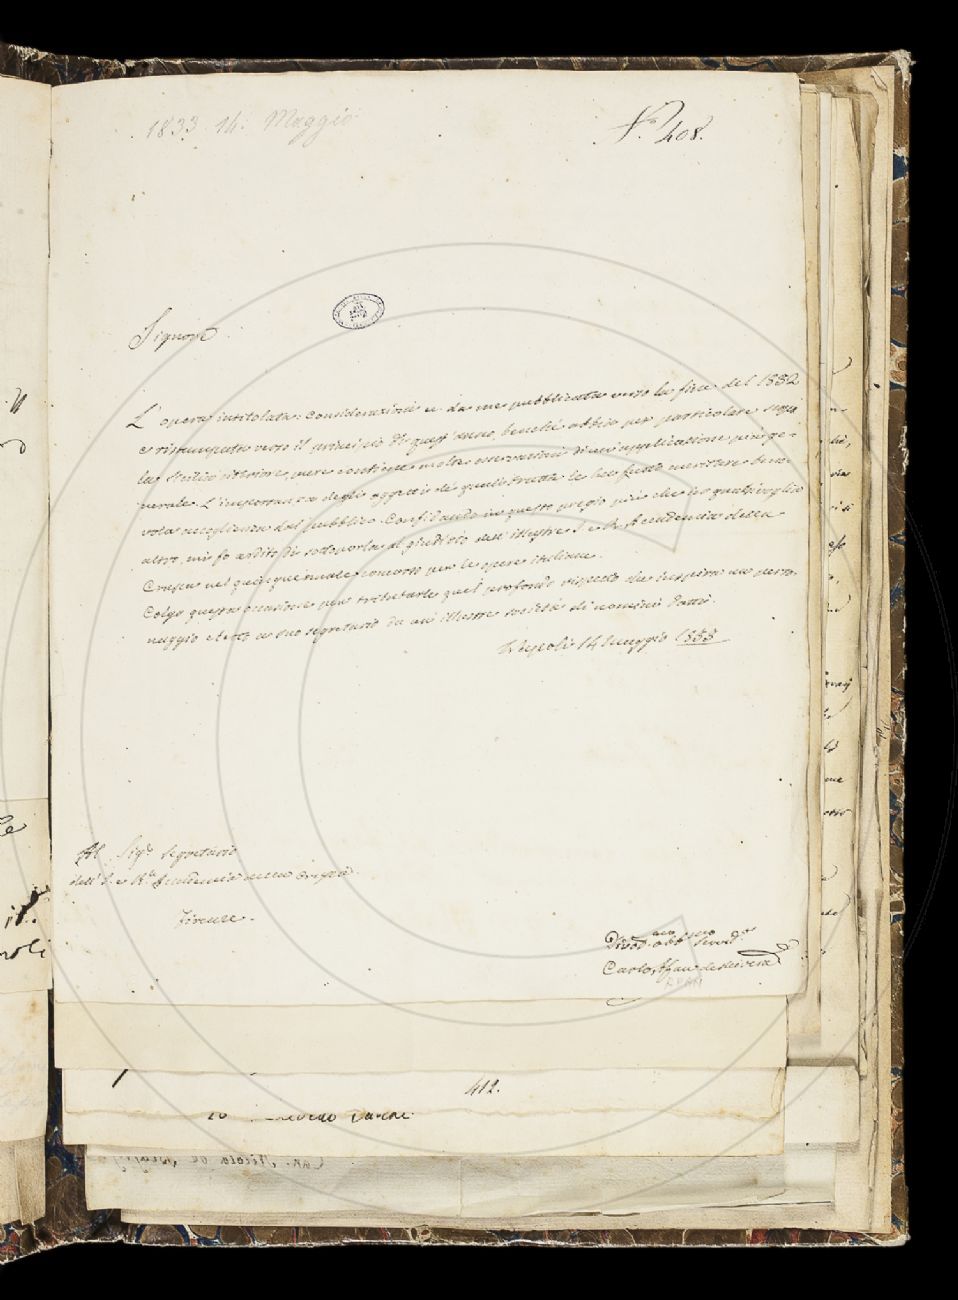 1833 14. Maggio
N.° 408.
Signore
L'opera intitolata: Considerazioni e da me pubblicata verso la fine del 1832
e ristampata verso il principio di quest'anno, benchè abbia per particolare
la Sicilia ulteriore, pure contiene molte osservazioni di un'applicazione più ge-
nerale. L'importanza degli oggetti de' quali tratta le ha fatto meritare bene-
vola accoglienza dal pubblico. Confidando in questo pregio più che in qualsivoglia
altro, mi fo ardito di sottoporla al giudizio dell'illustre I. e R. Accademia della
Crusca nel quinquennale concorso per le opere italiane.
Colgo questa occasione per tributarle quel profondo rispetto che inspira un perso-
naggio eletto a suo segretario da un'illustre società di uomini dotti.
Napoli 14 Maggio 1833
Al Sig.r Segretario
dell'I. e R.le Accademia della Crusca
Firenze.
Divod.mo obb.mo Servid.e
Carlo Afan de Rivera
AFAN
412.